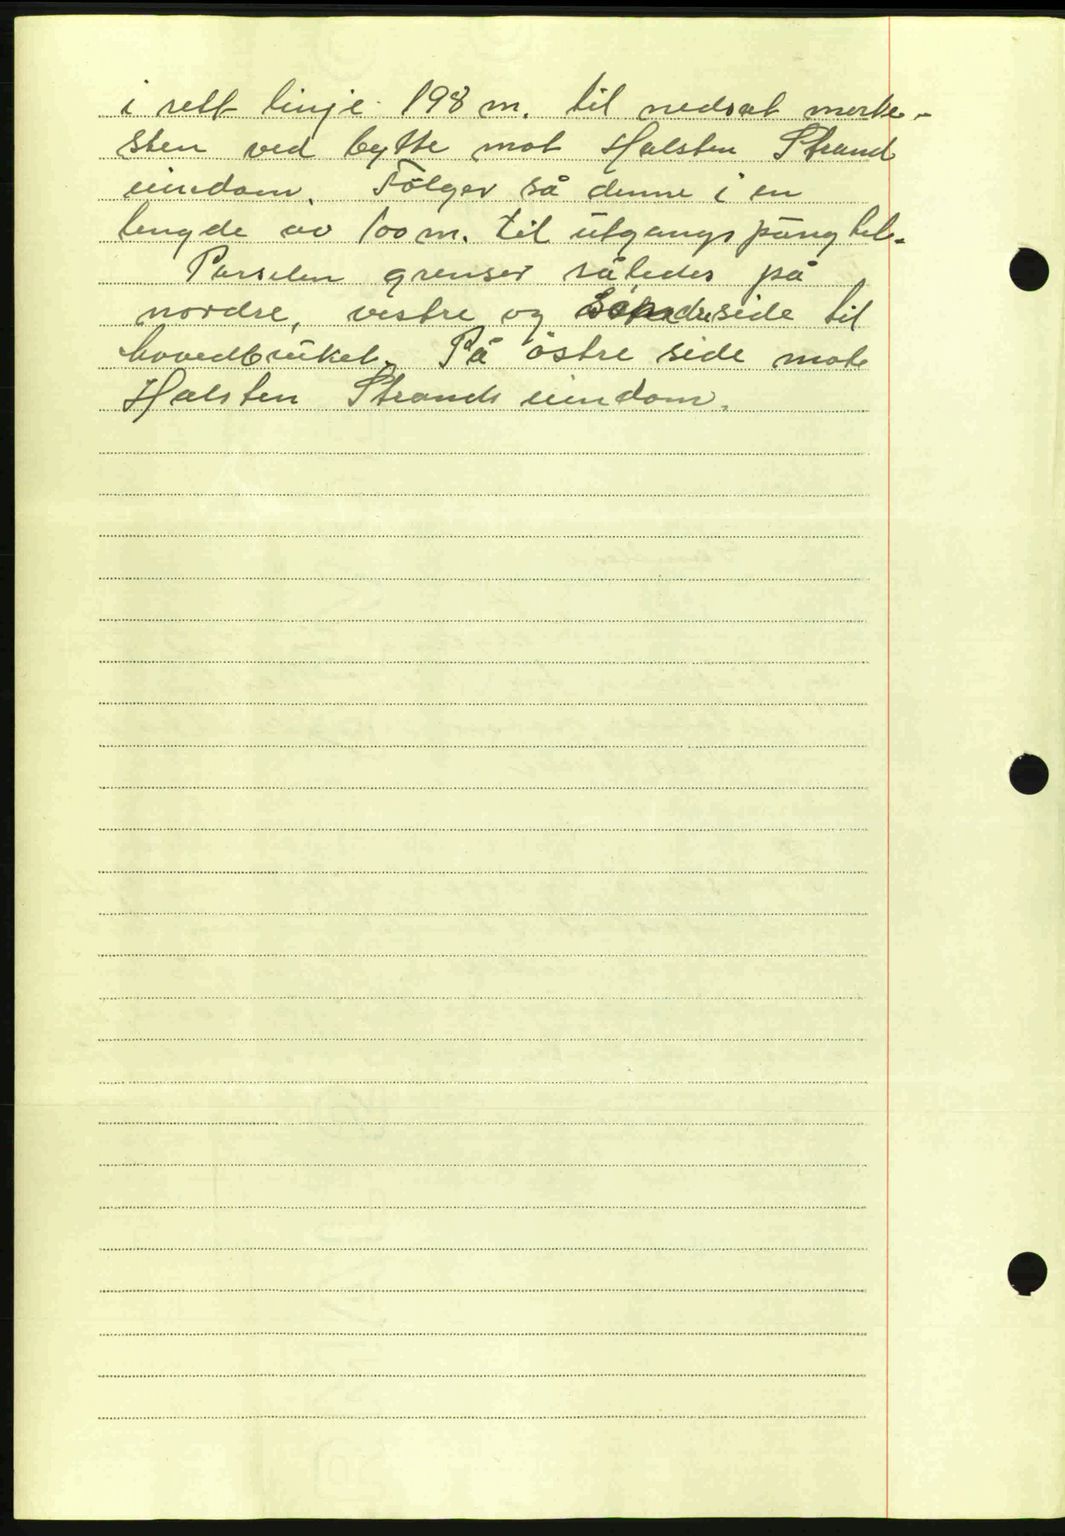 i rett linje 198 m. til nedsat merke-
sten ved bytte mot Halsten Strand
eiendom. Følger så denne i en
lengde av 100 m. til utgangspunghet.
Parselen grenser således på
nordre, vestre og søndre side til
hovedbruket. På østre side mote
Halsten Strands eiendom.